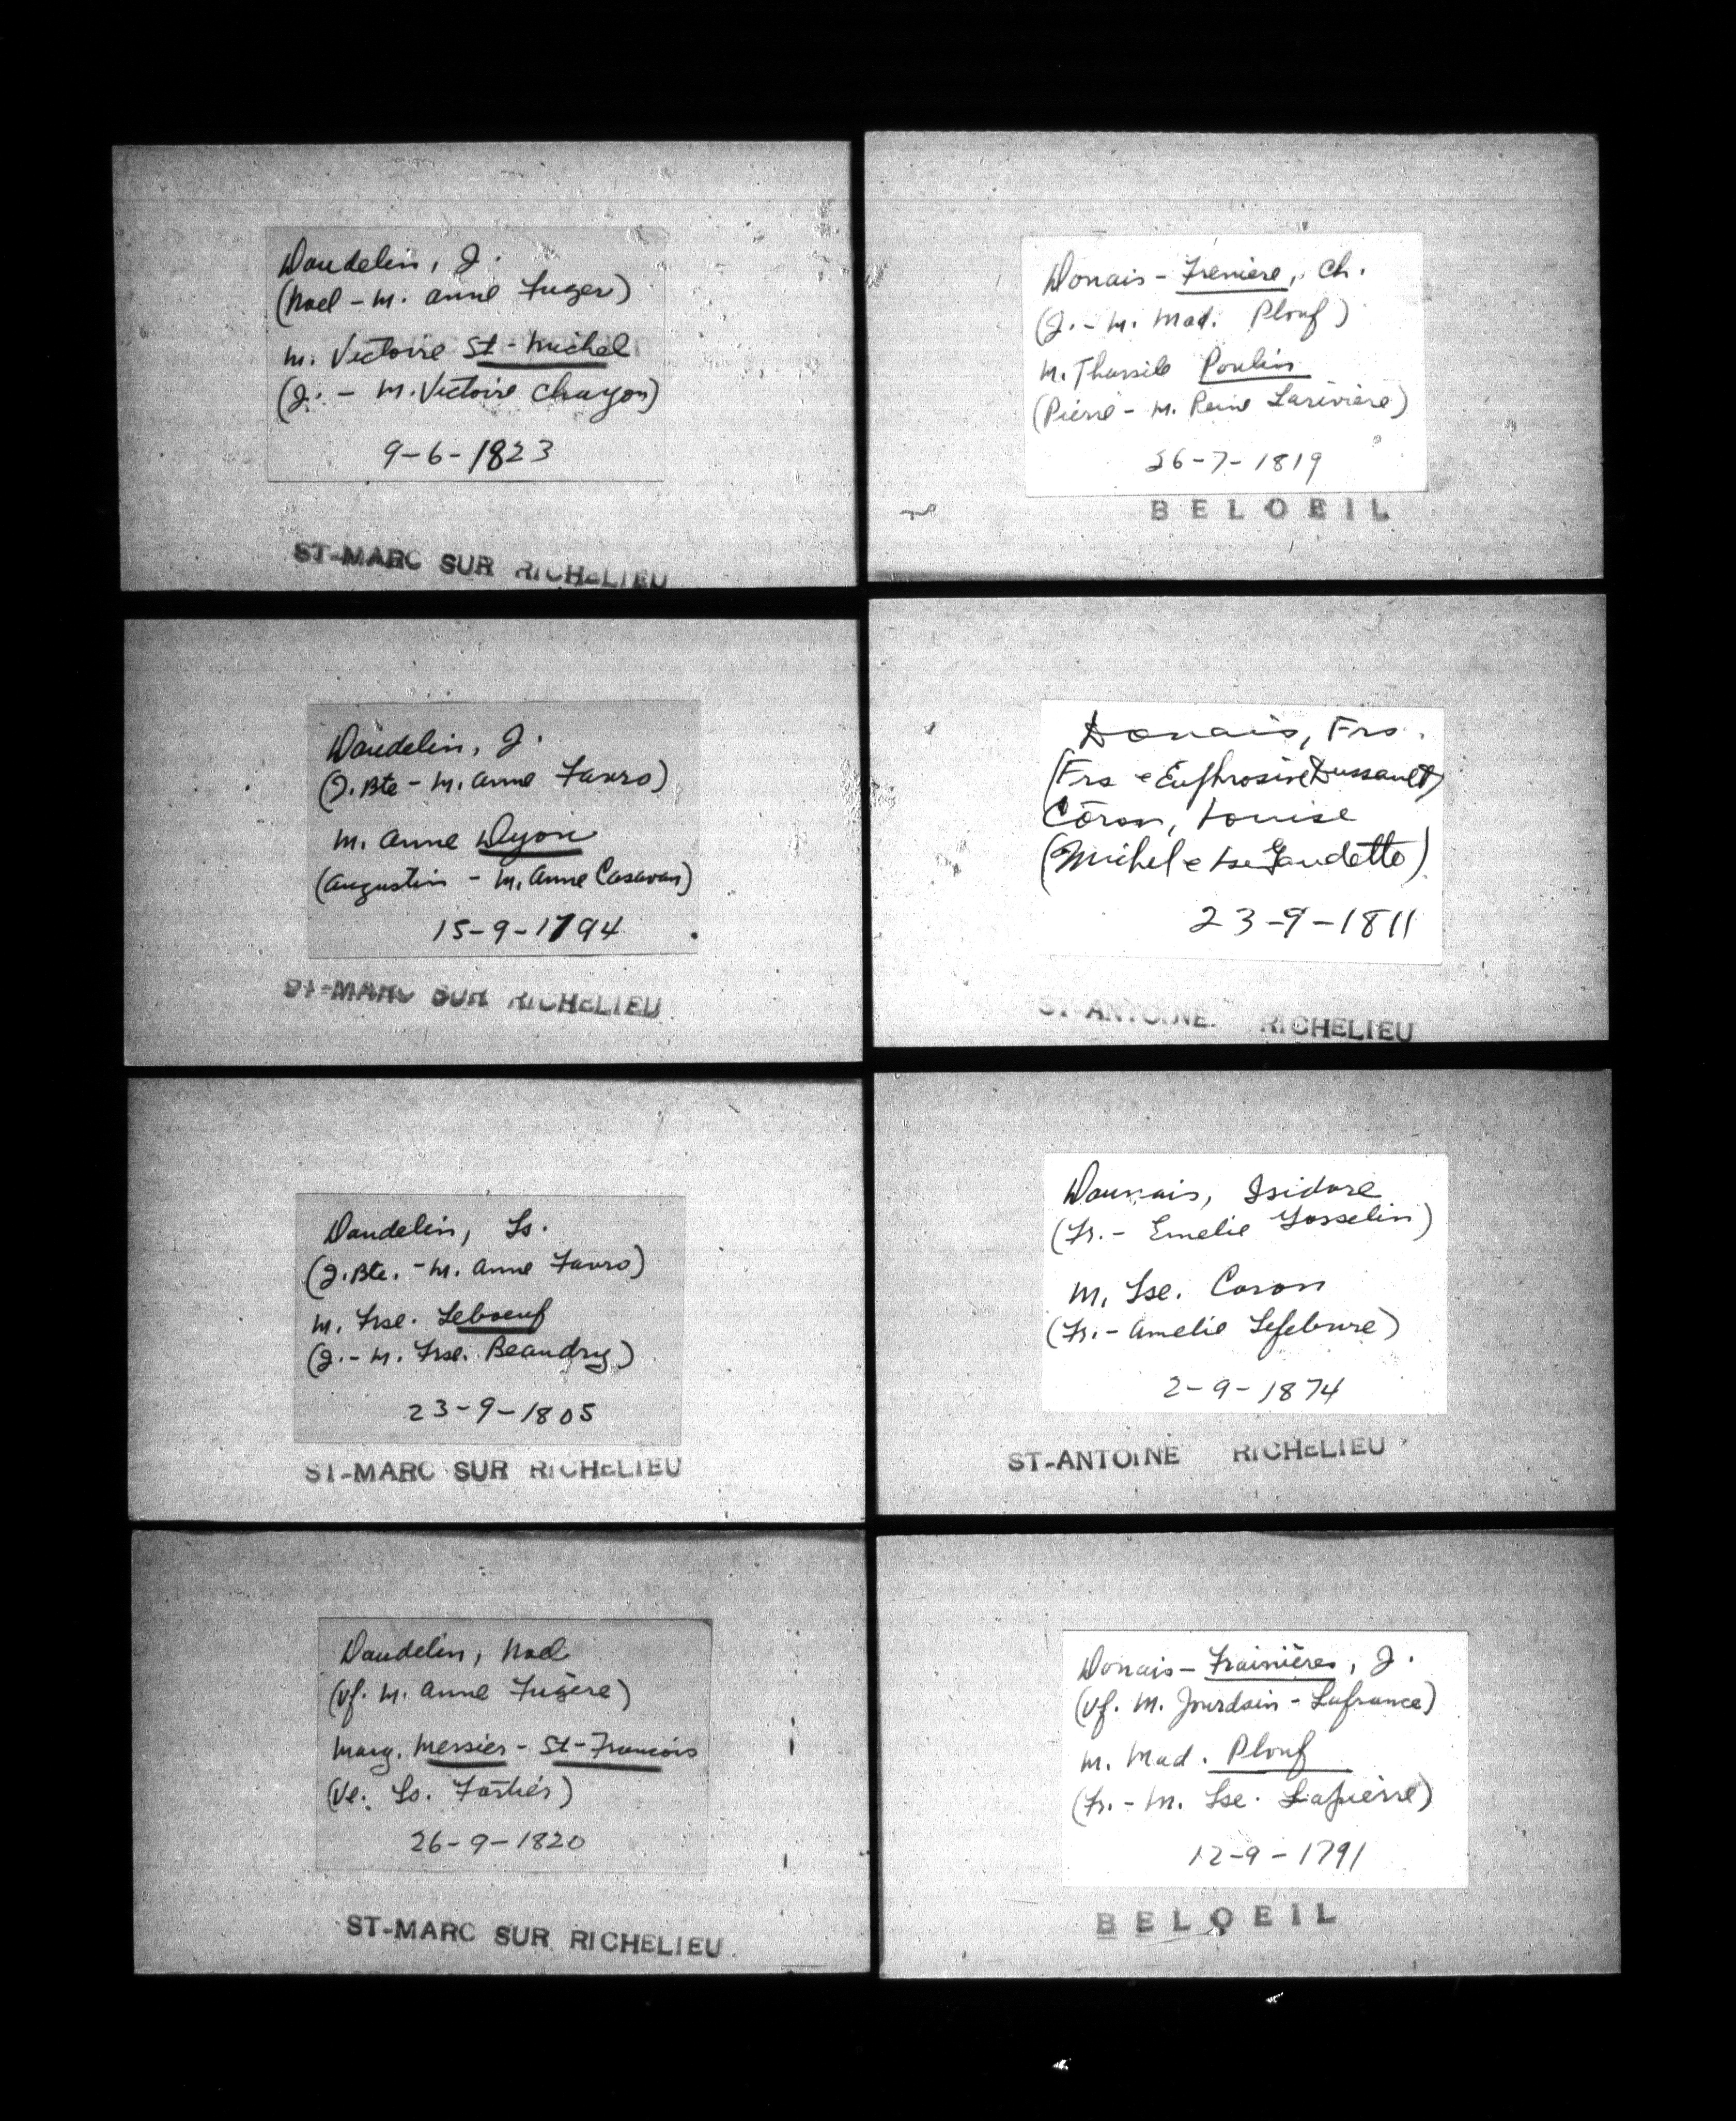 Daudelin, J.
(Noel - M. Anne Fugere)
M. Victoire St-Michel
(J. - M. Victoire Chagon)
9-6-1823
ST-MARC SUR RICHELIEU
Daudelin, J.
(J. Bte - M. Anne Favro)
M. Anne Dyon
(Augustin - M. Anne Casavan)
15-9-1794
ST-MARC SUR RICHELIEU
Daudelin, Ls.
(J. Bte. - M. Anne Favro)
M. Frse. Leboeuf
(J. - M. Frse. Beaudry)
23-9-1805
ST-MARC SUR RICHELIEU
Daudelin, Noel
(Vf. M. Anne Fugère)
Marg. Messier - St-Francois
(Ve. Ls. Fortier)
26-9-1820
ST-MARC SUR RICHELIEU
Donais - Freniere, Ch.
(J. - M. Mad. Plouf)
M. Tharsile Poulin
(Pierre - M. Reine Larivière)
26-7-1819
BELOEIL
Donais, Frs.
(Frs e Euphrosine Dussault)
Caron, Louise
(Michel e Lse Gaudette)
23-9-1811
ST-ANTOINE RICHELIEU
Daunais, Isidore
(Fr. - Emelie Gosselin)
M. Lse. Caron
(Fr. - Amelie Lefebvre)
2-9-1874
ST-ANTOINE RICHELIEU
Donais - Frainières, J.
(Vf. M. Jourdain - Lafrance)
M. Mad. Plouf
(Fr. - M. Lse. Lapierre)
12-9-1791
BELOEIL